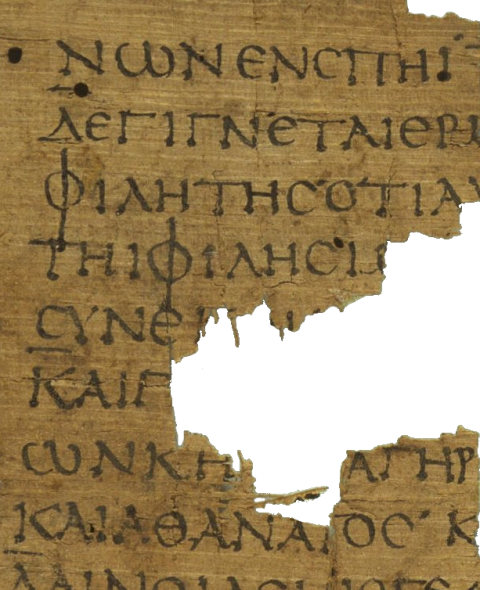 ΝΩΝΕΝϹΠΗΙ
ΔΕΓΙΓΝΕΤΑΙΕΡΙ
ΦΙΛΗΤΗϹΟΤΙΑΥ
ΤΗΙΦΙΛΗϹΙ
ϹΥΝΕ
ΚΑΙ
ΩΝΚΗ ΑΓΗΡ
ΚΑΙΑΘΑΝΑΤΟϹ Κ